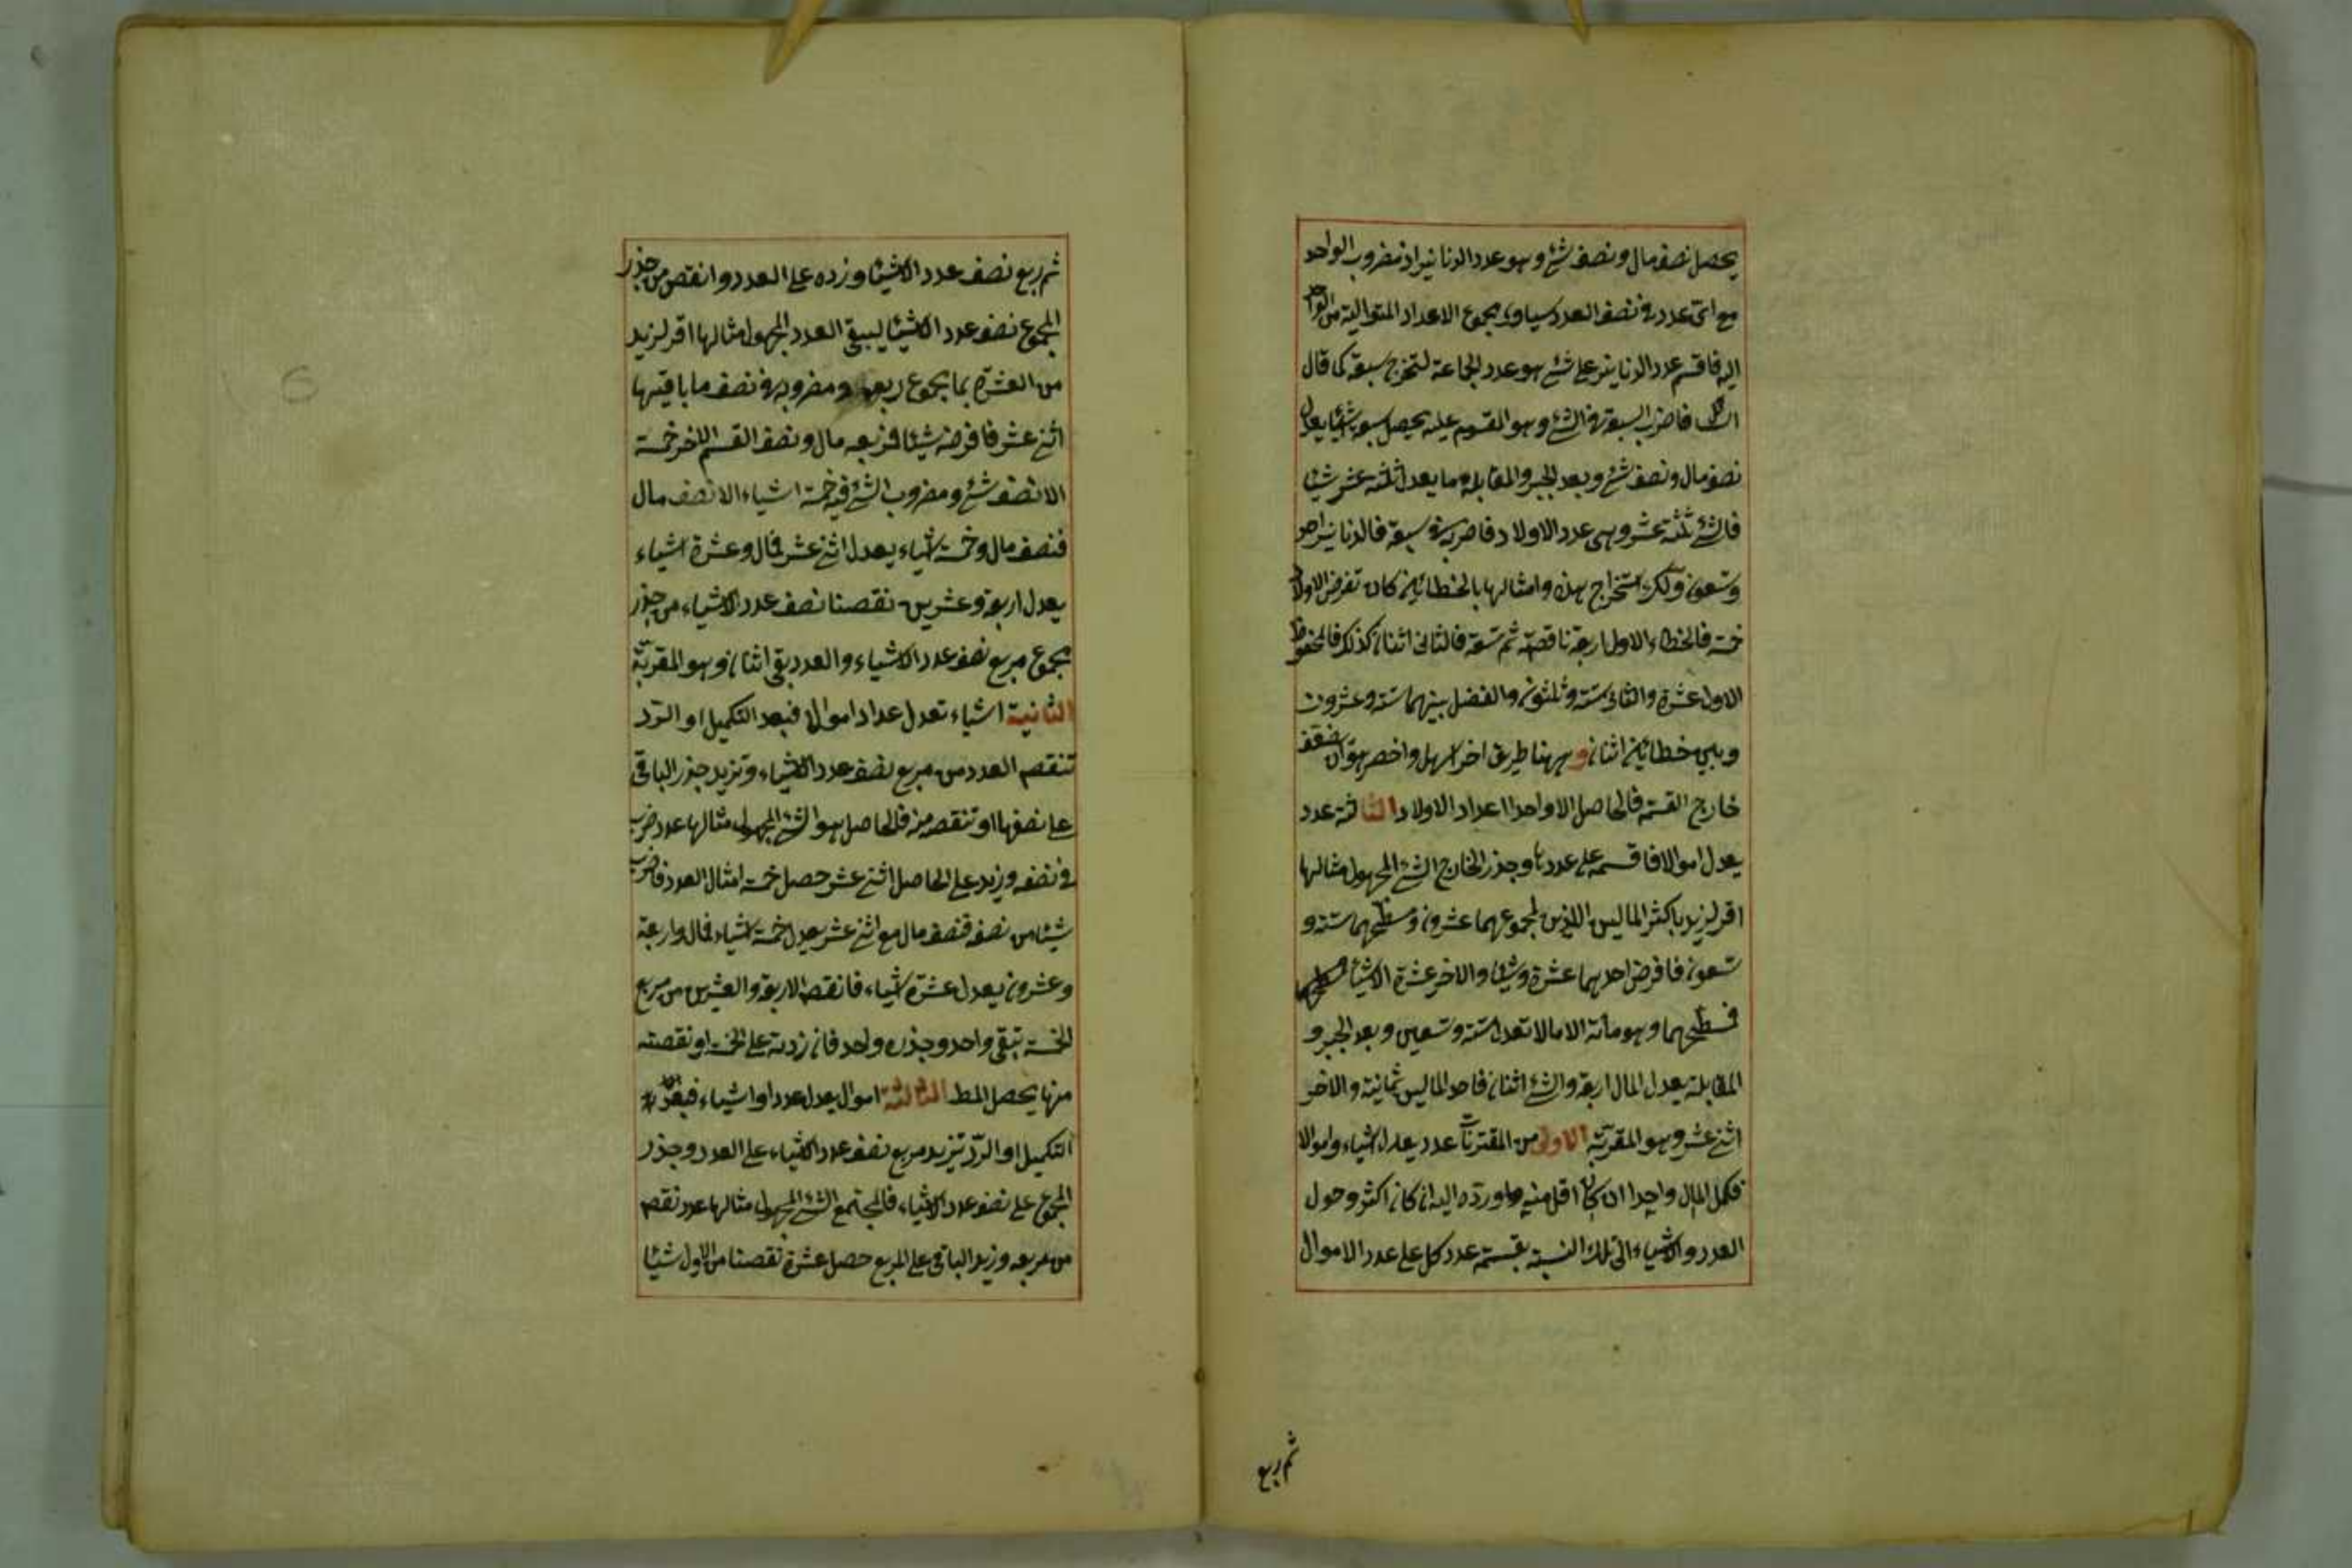 يحصل نصف مال ونصف شئ وهو عدد الدنانير اذ مضروب الواحد
مع اى عدد فى نصف العدد يساوى مجموع الاعداد المتوالية من الواحد
اليه فاقسم عدد الدنانير على شئ هو عدد الجماعة لتخرج سبعة كما قال
السائل فاضرب السبعة فى الشئ وهو المقسوم عليه يحصل سبعة اشياء يعدل
نصف مال ونصف شئ وبعد الجبر والمقابلة مال يعدل ثلثة عشر شيئا
فالشئ ثلثة عشر وهى عدد الاولاد فاضربه فى سبعة فالدنانير احد
وتسعون ولك استخراج هذه وامثالها بالخطائين كان تفرض الاولاد
خمسة فالخطاء الاول اربعة ناقصة ثم تسعة فالثانى اثنان كذلك فالمحفوظ
الاول عشرة والثانى ستة وثلثون والفضل بينهما ستة وعشرون
وبين خطائين اثنان وههنا طريق اخر اسهل واخصر هو ان يضعف
خارج القسمة فالحاصل الا واحدا اعداد الاولاد الثالثة عدد
يعدل اموالا فاقسمه على عددها وجذر الخارج الشئ المجهول مثالها
اقر لزيد باكثر المالين اللذين مجموعهما عشرون ومسطحهما ستة و
تسعون فافرض احدهما عشرة وشيئا والاخر عشرة الا شيئا
فمسطحهما وهو مائة الا مالا تعدل ستة وتسعين وبعد الجبر و
المقابلة يعدل المال اربعة والشئ اثنان فاحد المالين ثمانية والاخر
اثنى عشر وهو المقر به الاولى من المقترنات عدد يعدل اشياء واموالا
فكمل المال واحدا ان كان اقل منه ورده اليه ان كان اكثر وحول
العدد والاشياء الى تلك النسبة بقسمة عدد كل على عدد الاموال
ثم ربع
ثم ربع نصف عدد الاشياء وزده على العدد وانقص من جذر
المجموع نصف عدد الاشياء ليبقى العدد المجهول مثالها اقر لزيد
من العشرة بما مجموع ربعه ومضروبه فى نصف ما باقيها
اثنى عشر فافرضه شيئا فربعه مال ونصف القسم الاخر خمسة
الا نصف شئ ومضروب الشئ فيه خمسة اشياء الا نصف مال
فنصف مال وخمسة اشياء يعدل اثنى عشر فمال وعشرة اشياء
يعدل اربعة وعشرين نقصنا نصف عدد الاشياء من جذر
مجموع مربع نصف عدد الاشياء والعدد بقى اثنان وهو المقر به
الثانية اشياء تعدل عددا واموالا فبعد التكميل او الرد
تنقص العدد من مربع نصف عدد الاشياء وتزيد جذر الباقى
على نصفها او تنقصه منه فالحاصل هو الشئ المجهول مثالها عدد ضرب
فى نصفه وزيد على الحاصل اثنى عشر حصل خمسة امثال العدد فاضرب
شيئا من نصفه فنصف مال مع اثنى عشر يعدل خمسة اشياء فمال واربعة
وعشرون يعدل عشرة اشياء فانقص الاربعة والعشرين من مربع
الخمسة تبقى واحد وجذره واحد فان زدته على الخمسة او نقصته
منها يحصل المط الثالثة اموال يعدل عددا واشياء فبعد
التكميل او الرد تزيد مربع نصف عدد الاشياء على العدد وجذر
المجموع على نصف عدد الاشياء فالمجتمع الشئ المجهول مثالها عدد نقص
من مربعه وزيد الباقى على المربع حصل عشرة نقصنا من الاول شيئا